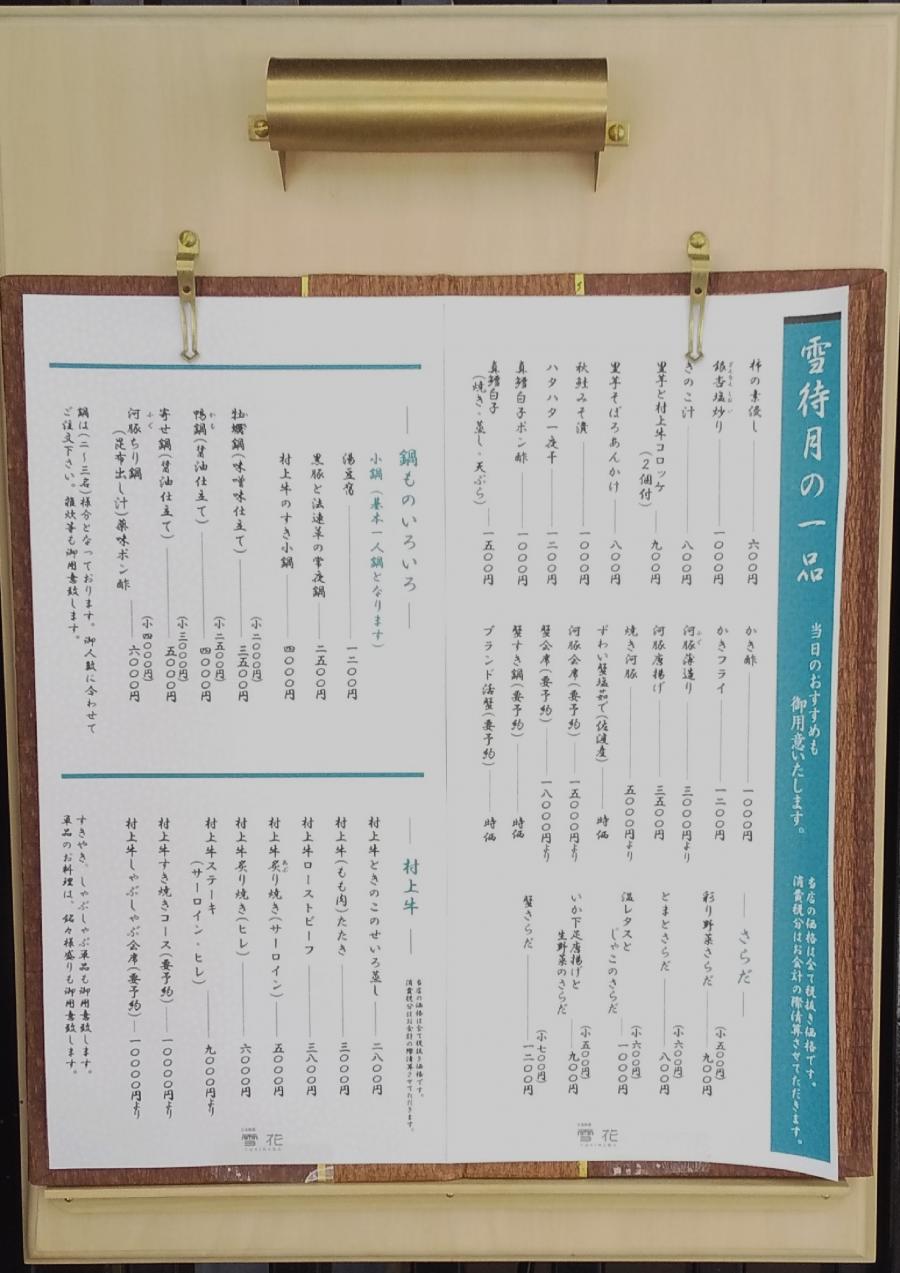 雪待月の一品
当日のおすすめも
御用意いたします。
当店の価格は全て税抜き価格です。
消費税分はお会計の際清算させてただきます。
柿の素浸し 六〇〇円
銀杏塩炒り 一〇〇〇円
きのこ汁 八〇〇円
里芋と村上牛コロッケ
(2個付) 九〇〇円
里芋そぼろあんかけ 八〇〇円
秋鮭みそ漬 一〇〇〇円
ハタハタ一夜干 一二〇〇円
真鱈白子ポン酢 一〇〇〇円
真鱈白子
(焼き・蒸し・天ぷら) 一五〇〇円
かき酢 一〇〇〇円
かきフライ 一二〇〇円
河豚薄造り 三〇〇〇円より
河豚唐揚げ 三五〇〇円
焼き河豚 五〇〇〇円より
ずわい蟹塩茹で(佐渡産) 時価
河豚会席(要予約) 一五〇〇〇円より
蟹会席(要予約) 一八〇〇〇円より
蟹すき鍋(要予約) 時価
ブランド活蟹(要予約) 時価
さらだ
彩り野菜さらだ (小五〇〇円) 九〇〇円
とまとさらだ (小六〇〇円) 八〇〇円
温レタスと
じゃこのさらだ (小六〇〇円) 一〇〇〇円
いか下足唐揚げと
生野菜のさらだ (小五〇〇円) 九〇〇円
蟹さらだ (小七〇〇円) 一二〇〇円
雪花
YUKIHANA
鍋ものいろいろ
小鍋(基本一人鍋となります)
湯豆富 一二〇〇円
黒豚と法連草の常夜鍋 二五〇〇円
村上牛のすき小鍋 四〇〇〇円
牡蠣鍋(味噌味仕立て) (小二〇〇〇円) 三五〇〇円
鴨鍋(醤油仕立て) (小二五〇〇円) 四〇〇〇円
寄せ鍋(醤油仕立て) (小三〇〇〇円) 五〇〇〇円
河豚ちり鍋
(昆布出し汁)薬味ポン酢 (小四〇〇〇円) 六〇〇〇円
鍋は(二〜三名)様分となっております。御人数に合わせて
ご注文下さい。雑炊等も御用意致します。
村上牛
当店の価格は全て税抜き価格です。
消費税分はお会計の際清算させてただきます。
村上牛ときのこのせいろ蒸し 二八〇〇円
村上牛(もも肉)たたき 三〇〇〇円
村上牛ローストビーフ 三八〇〇円
村上牛炙り焼き(サーロイン) 五〇〇〇円
村上牛炙り焼き(ヒレ) 六〇〇〇円
村上牛ステーキ
(サーロイン・ヒレ) 九〇〇〇円より
村上牛すき焼きコース(要予約) 一〇〇〇〇円より
村上牛しゃぶしゃぶ会席(要予約) 一〇〇〇〇円より
すきやき、しゃぶしゃぶ単品も御用意致します。
単品のお料理は、銘々様盛りも御用意致します。
雪花
YUKIHANA